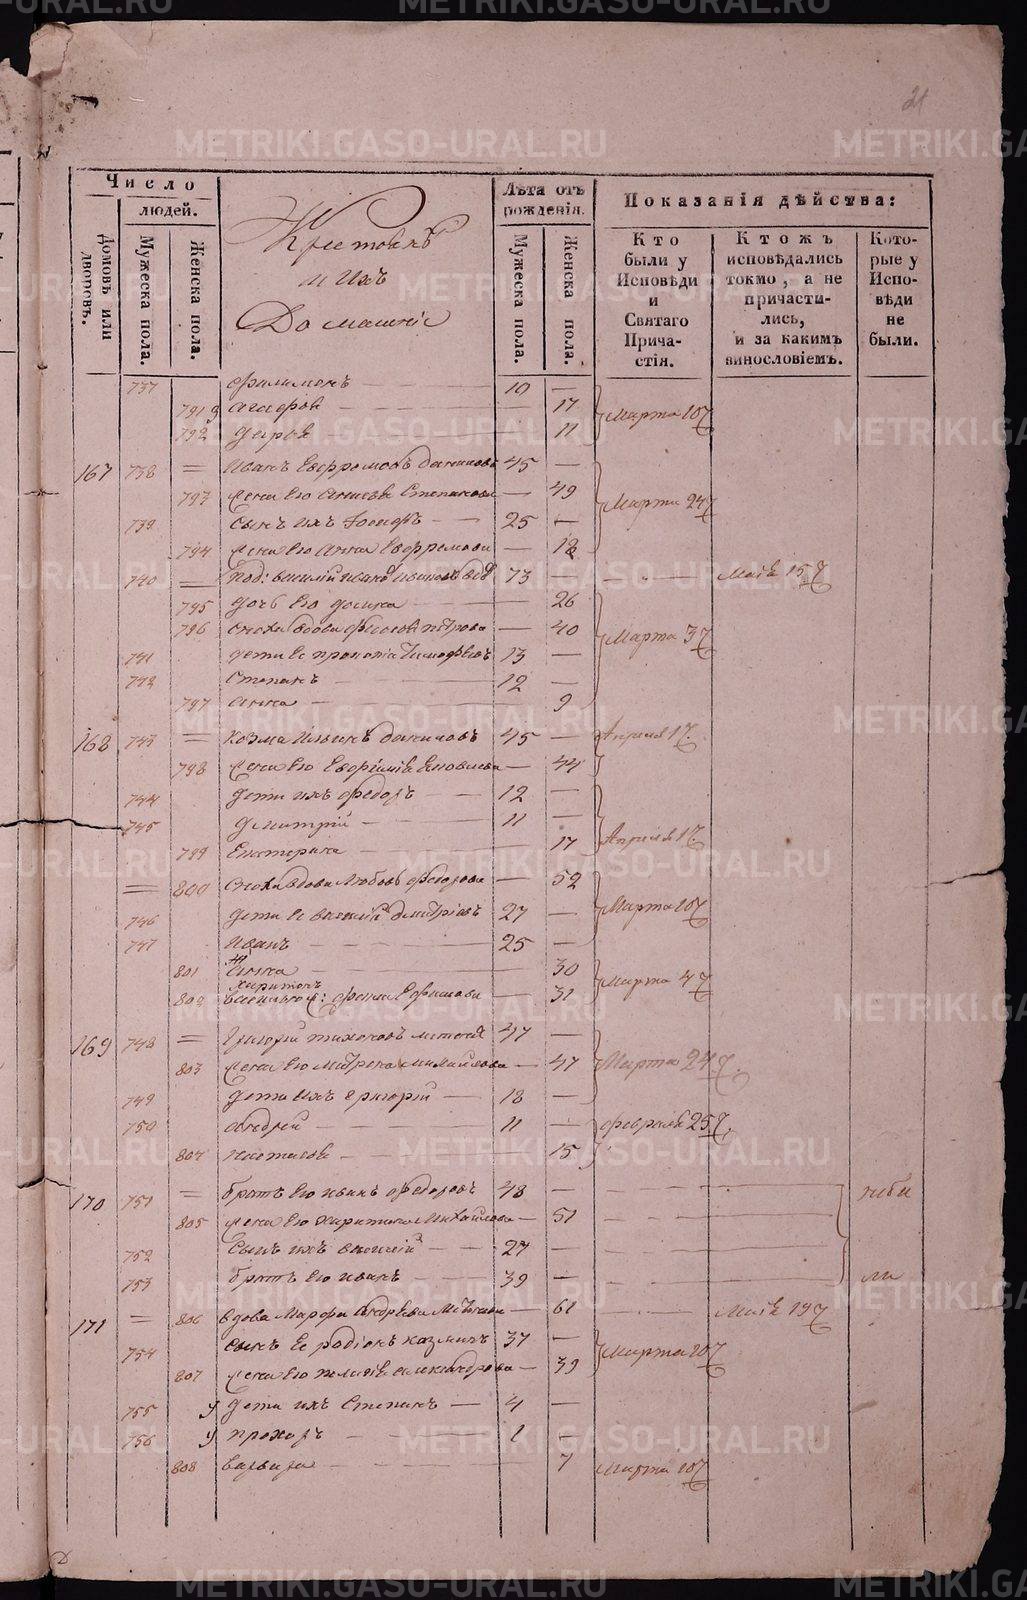 21
Число людей.
Домовъ или дворовъ.
Мужеска пола.
Женска пола.
Крестьянъ
и ихъ
Домашніе
Лѣта отъ рожденія.
Мужеска пола.
Женска пола.
Показанія дѣйства:
Кто были у Исповѣди и Святаго Причастія.
Ктожъ исповѣдались токмо, а не причастились, и за какимъ винословіемъ.
Которые у Исповѣди не были.
737 Филимонъ 10
791 Агафья 17 Марта 10
792 Дарья 11
167 738 Иванъ Ефремовъ Даниловъ 45
793 жена его Анисья Степанова 49 Марта 24
739 сынъ ихъ Іосифъ 25
794 жена его Анна Ефремова 18
740 73 Маія 15
795 дочь его 26
796 сноха вдова Петрова 40 Марта 3
741 дети ее Прокопій Тимофѣевъ 13
742 Степанъ 12
797 Анна 9
168 743 Козма Ильинъ Даниловъ 45 Апреля 1
798 жена его Евфимія Яковлева 44
744 дети ихъ Федоръ 12
745 Дмитрій 11
799 Екатерина 17 Апреля 1
800 сноха вдова Любовь Федорова 52
746 дети ее Василій Дмитріевъ 27 Марта 10
747 Иванъ 25
801 Анна 30
802 Ефимова 31 Марта 4
169 748 Григорій Тихоновъ 47
803 жена его Матрена Михайлова 47 Марта 24
749 дети ихъ Григорій 18
750 Андрей 11 Февраля 25
804 Настасья 15
170 751 братъ его Иванъ Федоровъ 48 не бы
805 жена его Харитина Михайлова 51
752 сынъ ихъ Василій 27
753 братъ его Иванъ 39 ли
171 806 вдова Марфа Андреева 61 Маія 19
754 сынъ ее Родіонъ Казминъ 37 Марта 10
807 жена его Пелагія Александрова 39
755 у дети ихъ Степанъ 4
756 у Прохоръ 1
808 Варвара 7 Марта 10
METRIKI.GASO-URAL.RU